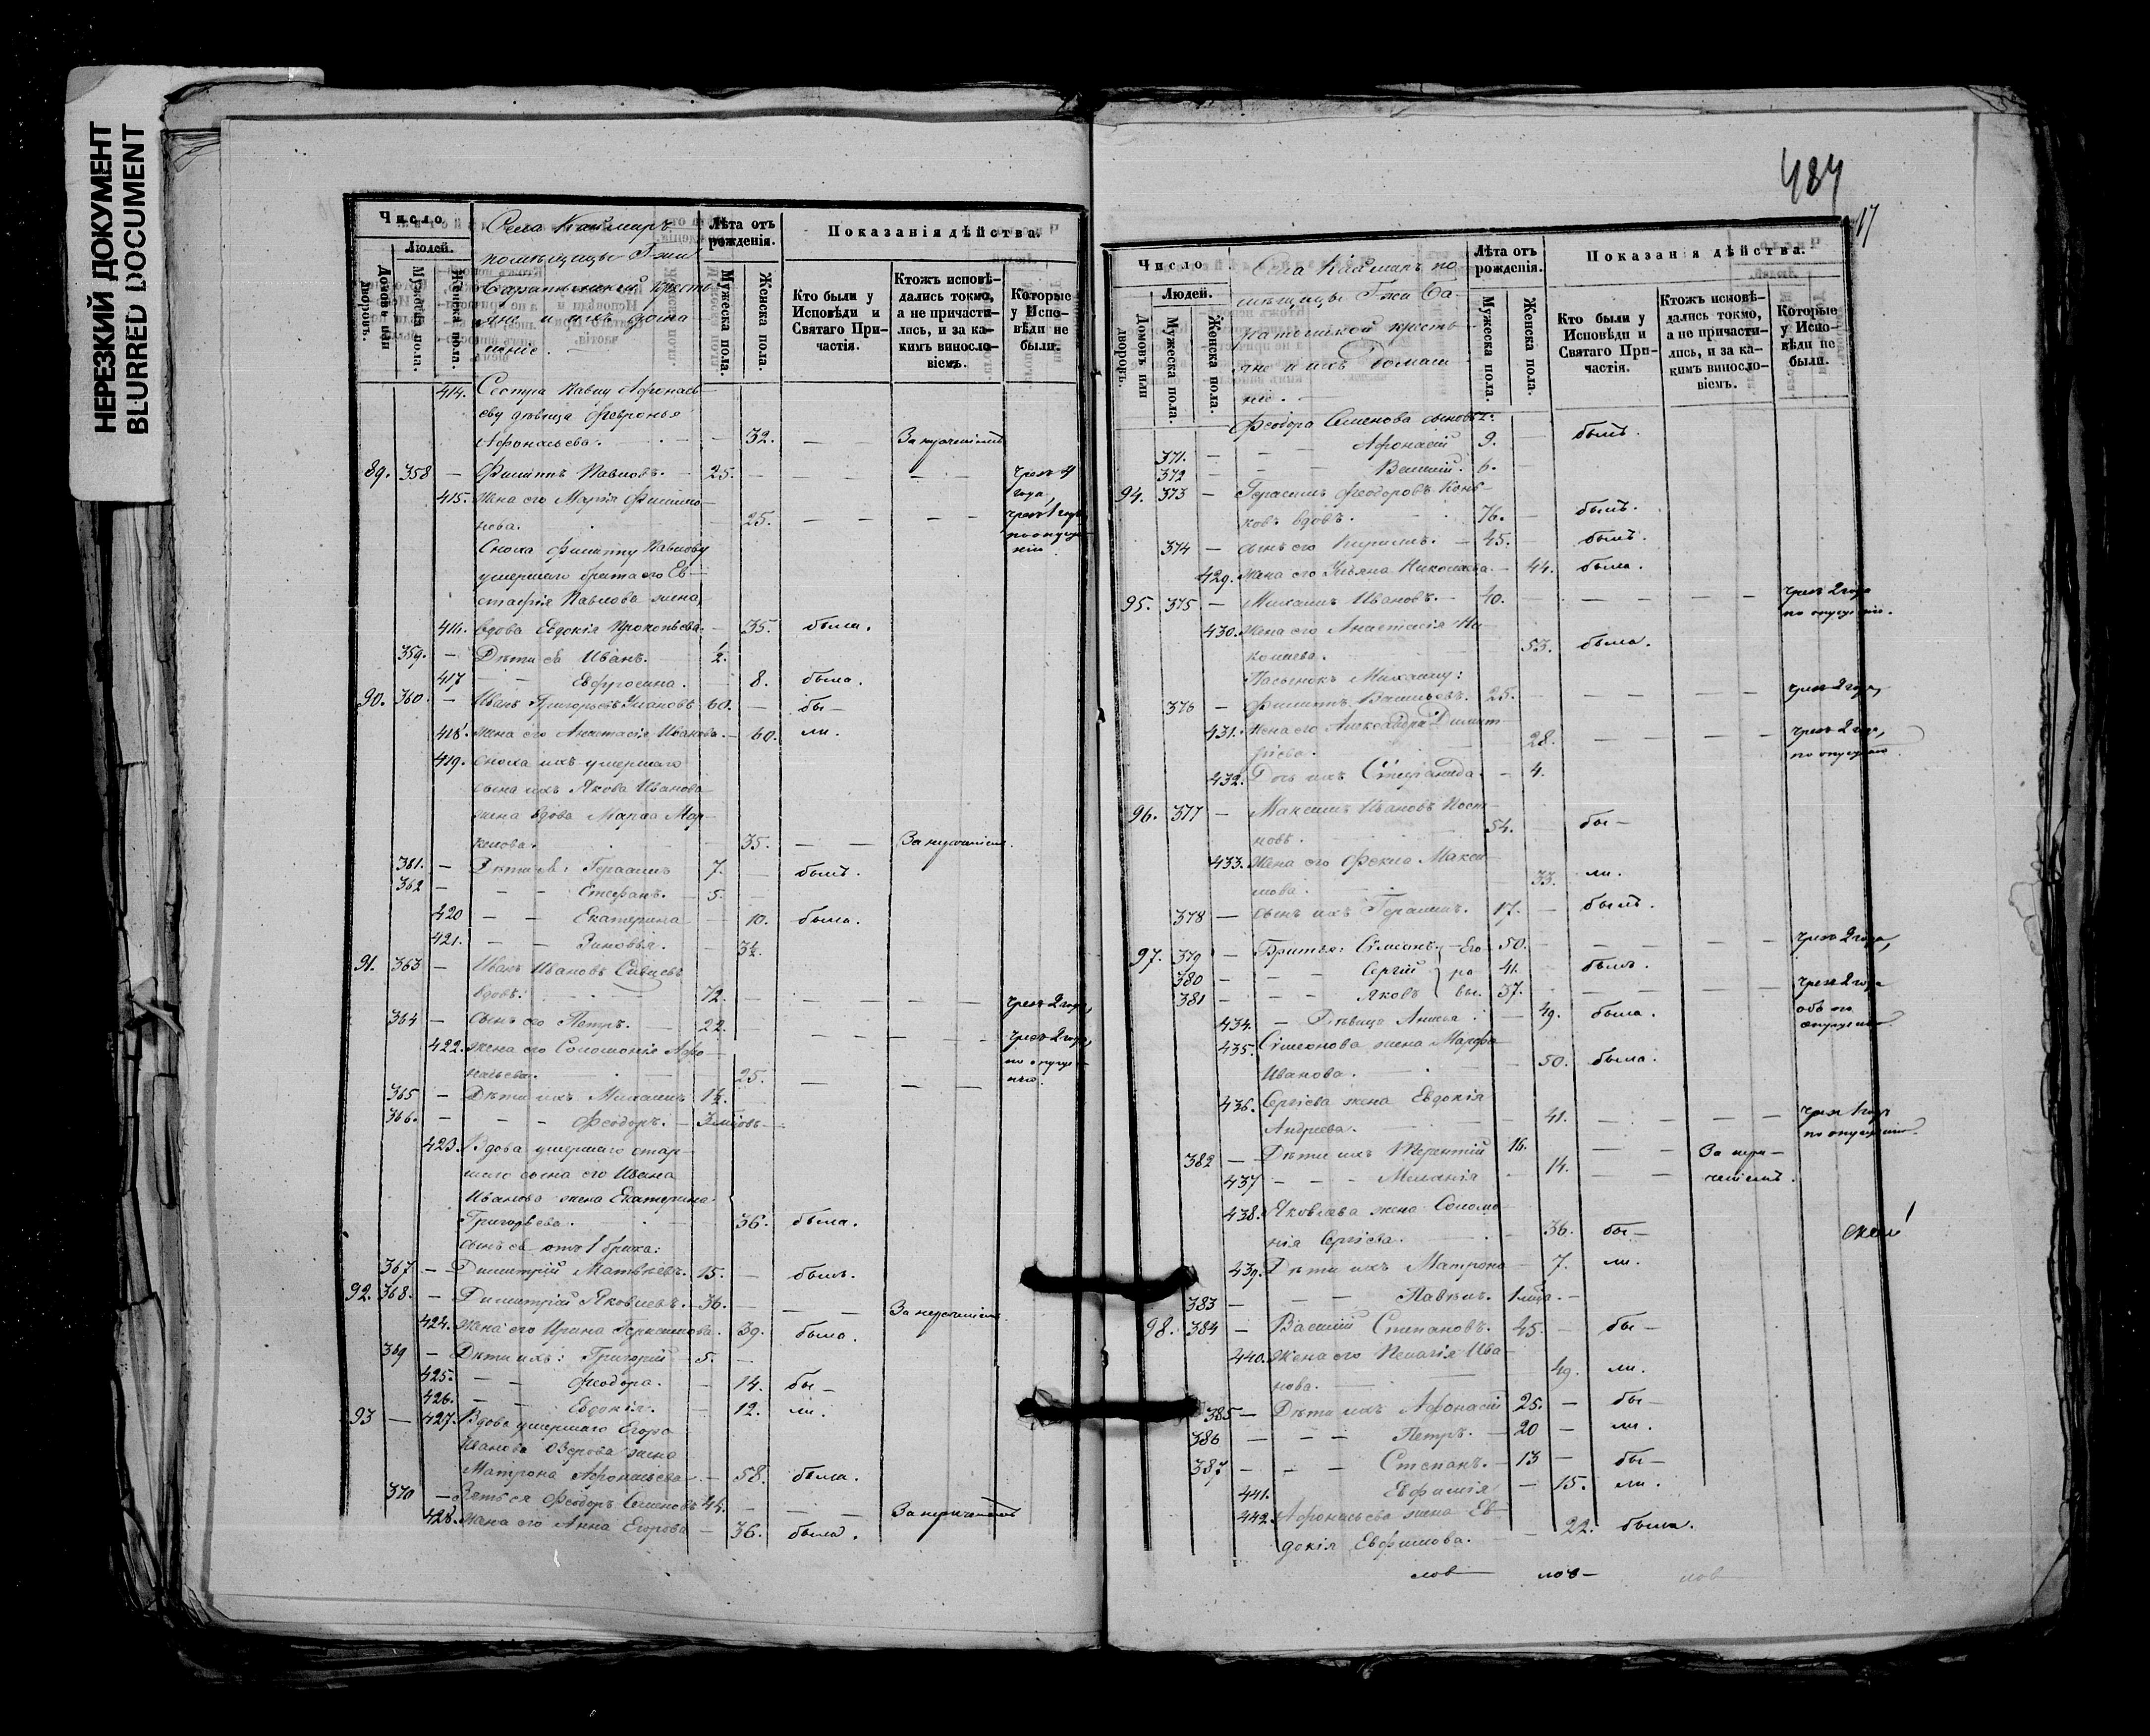 НЕРЕЗКИЙ ДОКУМЕНТ
BLURRED DOCUMENT
Число
Людей.
Домовъ или дворовъ.
Мужеска пола.
Женска пола.
Села Каймаръ
помѣщицы Г-жи
кресть-
яне и ихъ дома-
шніе.
Лѣта отъ рожденія.
Мужеска пола.
Женска пола.
Показанія дѣйства.
Кто были у Исповѣди и Святаго При-частія.
Ктожъ исповѣ-дались токмо, а не причасти-лись, и за ка-кимъ виносло-віемъ.
Которые у Испо-вѣди не были.
414. Сестра Павлу Афонась-
еву дѣвица Февронья
Афонасьева. 32. — —
89. 358 — Филиппъ Павловъ. 25. — — — — чрезъ 4 года,
415. Жена его Марія Филимо-
нова. 25. — — — — чрезъ 1 годъ по опуще-нію.
Сноха Филиппу Павлову
умершаго брата его Ев-
стафія Павлова жена,
416. вдова Евдокія Прокопьева. 35. была.
359. — Дѣти ея Иванъ. ½.
417 — — Евфросина. 8. была.
90. 360. — Иванъ Григорьевъ 60. — бы—
418. Жена его Анастасія Иванова. — 60. ли.
419. Сноха ихъ умершаго
сына ихъ Якова Иванова
жена вдова Марѳа Мар-
келова. 35. — —
381. — Дѣти ея: Герасимъ 7. — былъ.
362 — — — Стефанъ. 5. —
420 — — Екатерина 10. была.
421. — — Зиновья. 3½.
91. 363 — Иванъ Ивановъ
вдовъ. 72. — — — — — чрезъ 2 года,
364 — Сынъ его Петръ. 22. — — — — чрезъ 2 года, по опуще-нію.
422. Жена его Соломонія Афо-
насьева. 25. — — —
365 — Дѣти ихъ Михаилъ 1½
366. — — — Феодоръ.
423. Вдова умершаго стар-
шаго сына его Ивана
Иванова жена Екатерина
Григорьева. 36. была.
сынъ ея отъ 1 брака:
367. — — Димитрій Матвѣевъ. 15. — былъ.
92. 368. — Димитрій Яковлевъ. — 36. — — —
424. Жена его Ирина Герасимова. 39. была.
369 — Дѣти ихъ: Григорій 5. —
425. — — Феодора. 14. бы—
426. — — Евдокія. 12. ли.
93 — 427. Вдова умершаго Егора
Иванова жена
Матрона Афонасьева — 58. была.
370 — Зять ея Феодоръ Семеновъ 44. — — —
428. Жена его Анна Егорова — 36. была.
484
17
Число
Людей.
Домовъ или дворовъ.
Мужеска пола.
Женска пола.
Села Каймаръ по-
мѣщицы Г-жи
кресть-
яне и ихъ домаш-
ніе.
Лѣта отъ рожденія.
Мужеска пола.
Женска пола.
Показанія дѣйства.
Кто были у Исповѣди и Святаго При-частія.
Ктожъ исповѣ-дались токмо, а не причасти-лись, и за ка-кимъ виносло-віемъ.
Которые у Испо-вѣди не были.
Феодора Семенова сыновья:
371. — — — Афонасій 9. — былъ.
372 — — — Василій. 6. —
94. 373 — Герасимъ Феодоровъ
вдовъ. 76. — былъ.
374 — Сынъ его Кириллъ. — 45. — былъ.
429. Жена его Ульяна Николаева. — 44. была.
95. 375 — Михаилъ Ивановъ. — 40. — — — — — чрезъ 2 года по опущенію.
430. Жена его Анастасія Ни-
колаева. 53. была.
Пасынокъ Михаилу:
376 — Филиппъ Васильевъ. 25. — — — — — чрезъ 2 года,
431. Жена его Александра Димит-
ріева. 28. — — — — чрезъ 2 года, по опущенію
432. Дочь ихъ Стефанида. — 4.
96. 377 — Максимъ Ивановъ
54. — бы—
433. Жена его Фекла Макси-
мова. 33. ли.
378 — Сынъ ихъ Герасимъ. 17. — былъ.
97. 379 — Братья: Симеонъ — Его 50. — — — — чрезъ 2 года,
380 — — — Сергій ро 41. былъ.
381 — — — Яковъ вы. 37. — — — — чрезъ 2 года оба по опущенію.
434. — Дѣвица Анисья — 49. была.
435. Симеонова жена Марфа
Иванова. 50. была.
436. Сергіева жена Евдокія
Андреева. 41. — — — — чрезъ 1 годъ по опущенію.
382 — Дѣти ихъ Терентій 16. — —
437 — — — Меланія 14. — —
438. Яковлева жена Соломо-
нія Сергіева. 36. бы—
439. Дѣти ихъ Матрона — 7. ли.
383 — — — Павелъ.
98. 384 — Василій Степановъ. 45. — бы—
440. Жена его Пелагія Ива-
нова. 49. ли.
385 — Дѣти ихъ Афонасій 25. — бы—
386 — — — Петръ. 20 — ли.
387 — — — Степанъ. — 13 — бы—
441. Евфимія — 15. ли.
442. Афонасьева жена Ев-
докія Евфимова. 22. была.